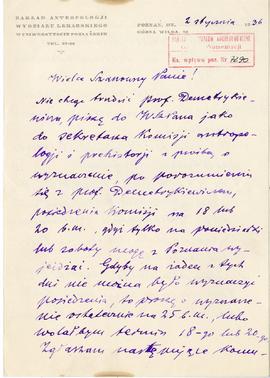 ZAKŁAD ANTROPOLGJI
WYDZIAŁU LEKARSKIEGO
UNIWERSYTETU POZNAŃSKIEGO
TEL.
POZNAŃ, DN. 2 stycznia 1936
GÓRNA WILDA
Ks. wpływu poz. Nr
Wielce Szanowny Panie!
Nie chcąc trudzić prof. Demetrykie-
wicza, piszę do W. Pana jako
do sekretarza Komisji antropo-
logji i prehistorji z prośbą o
wyznaczenie, po porozumieniu
się z prof. Demetrykiewiczem,
posiedzenia Komisji na 18 lub
20 b.m., gdyż tylko na poniedziałki
lub soboty mogę z Poznania wy-
jeżdżać. Gdyby na żaden z tych
dni nie można było wyznaczyć
posiedzenia, to proszę o wyznacze-
nie ostatecznie na 25 b.m., lubo
wolałbym termin 18-go lub 20-go.
Zgłaszam następujące komu-